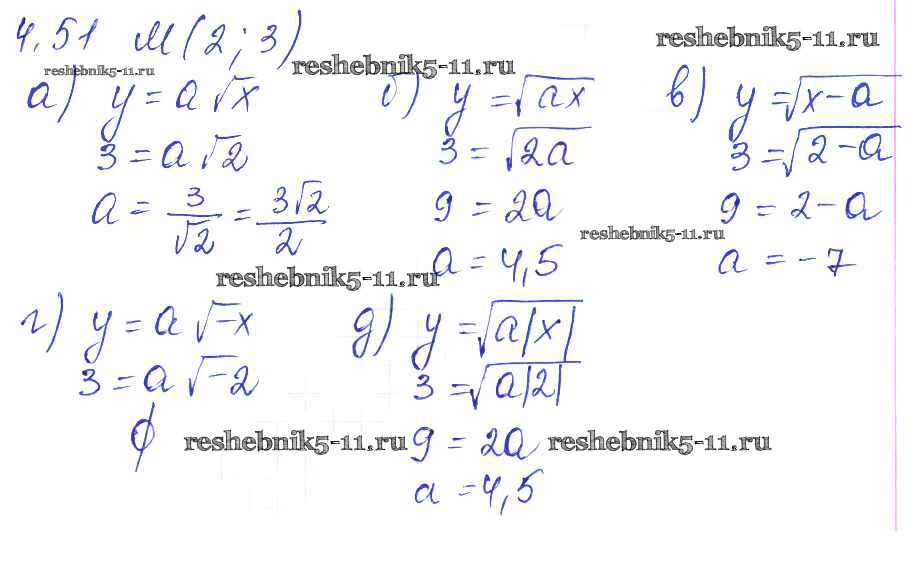 4.51 М(2; 3)
reshebnik5-11.ru
reshebnik5-11.ru
reshebnik5-11.ru
а) y = a√x
3 = a√2
a = 3/√2 = 3√2/2
б) y = √ax
3 = √2a
9 = 2a
a = 4,5
в) y = √x-a
3 = √2-a
9 = 2-a
a = -7
reshebnik5-11.ru
reshebnik5-11.ru
г) y = a√-x
3 = a√-2
∅
д) y = √a|x|
3 = √a|2|
9 = 2a
a = 4,5
reshebnik5-11.ru
reshebnik5-11.ru